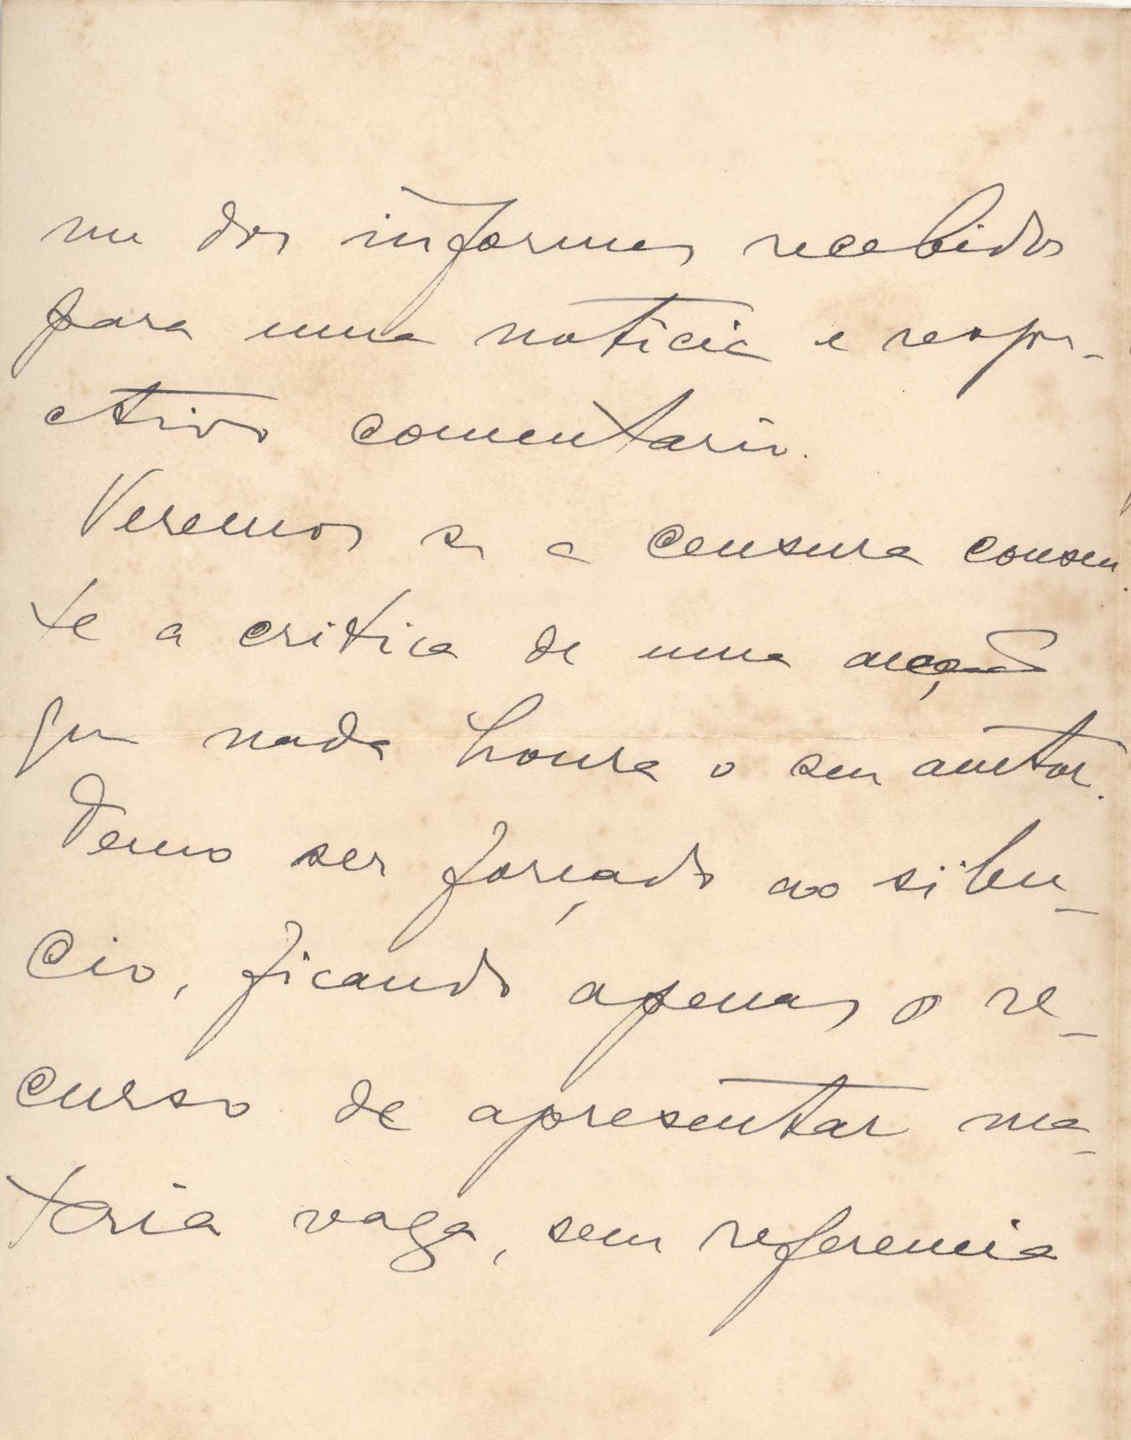 me dos informes recebidos
para uma noticia e respe-
ctivo comentario.
Veremos se a censura consen-
te a critica de uma acção
que nada honra o seu auctor.
Temo ser forçado ao silen-
cio, ficando apenas o re-
curso de apresentar ma-
teria vaga, sem referencia